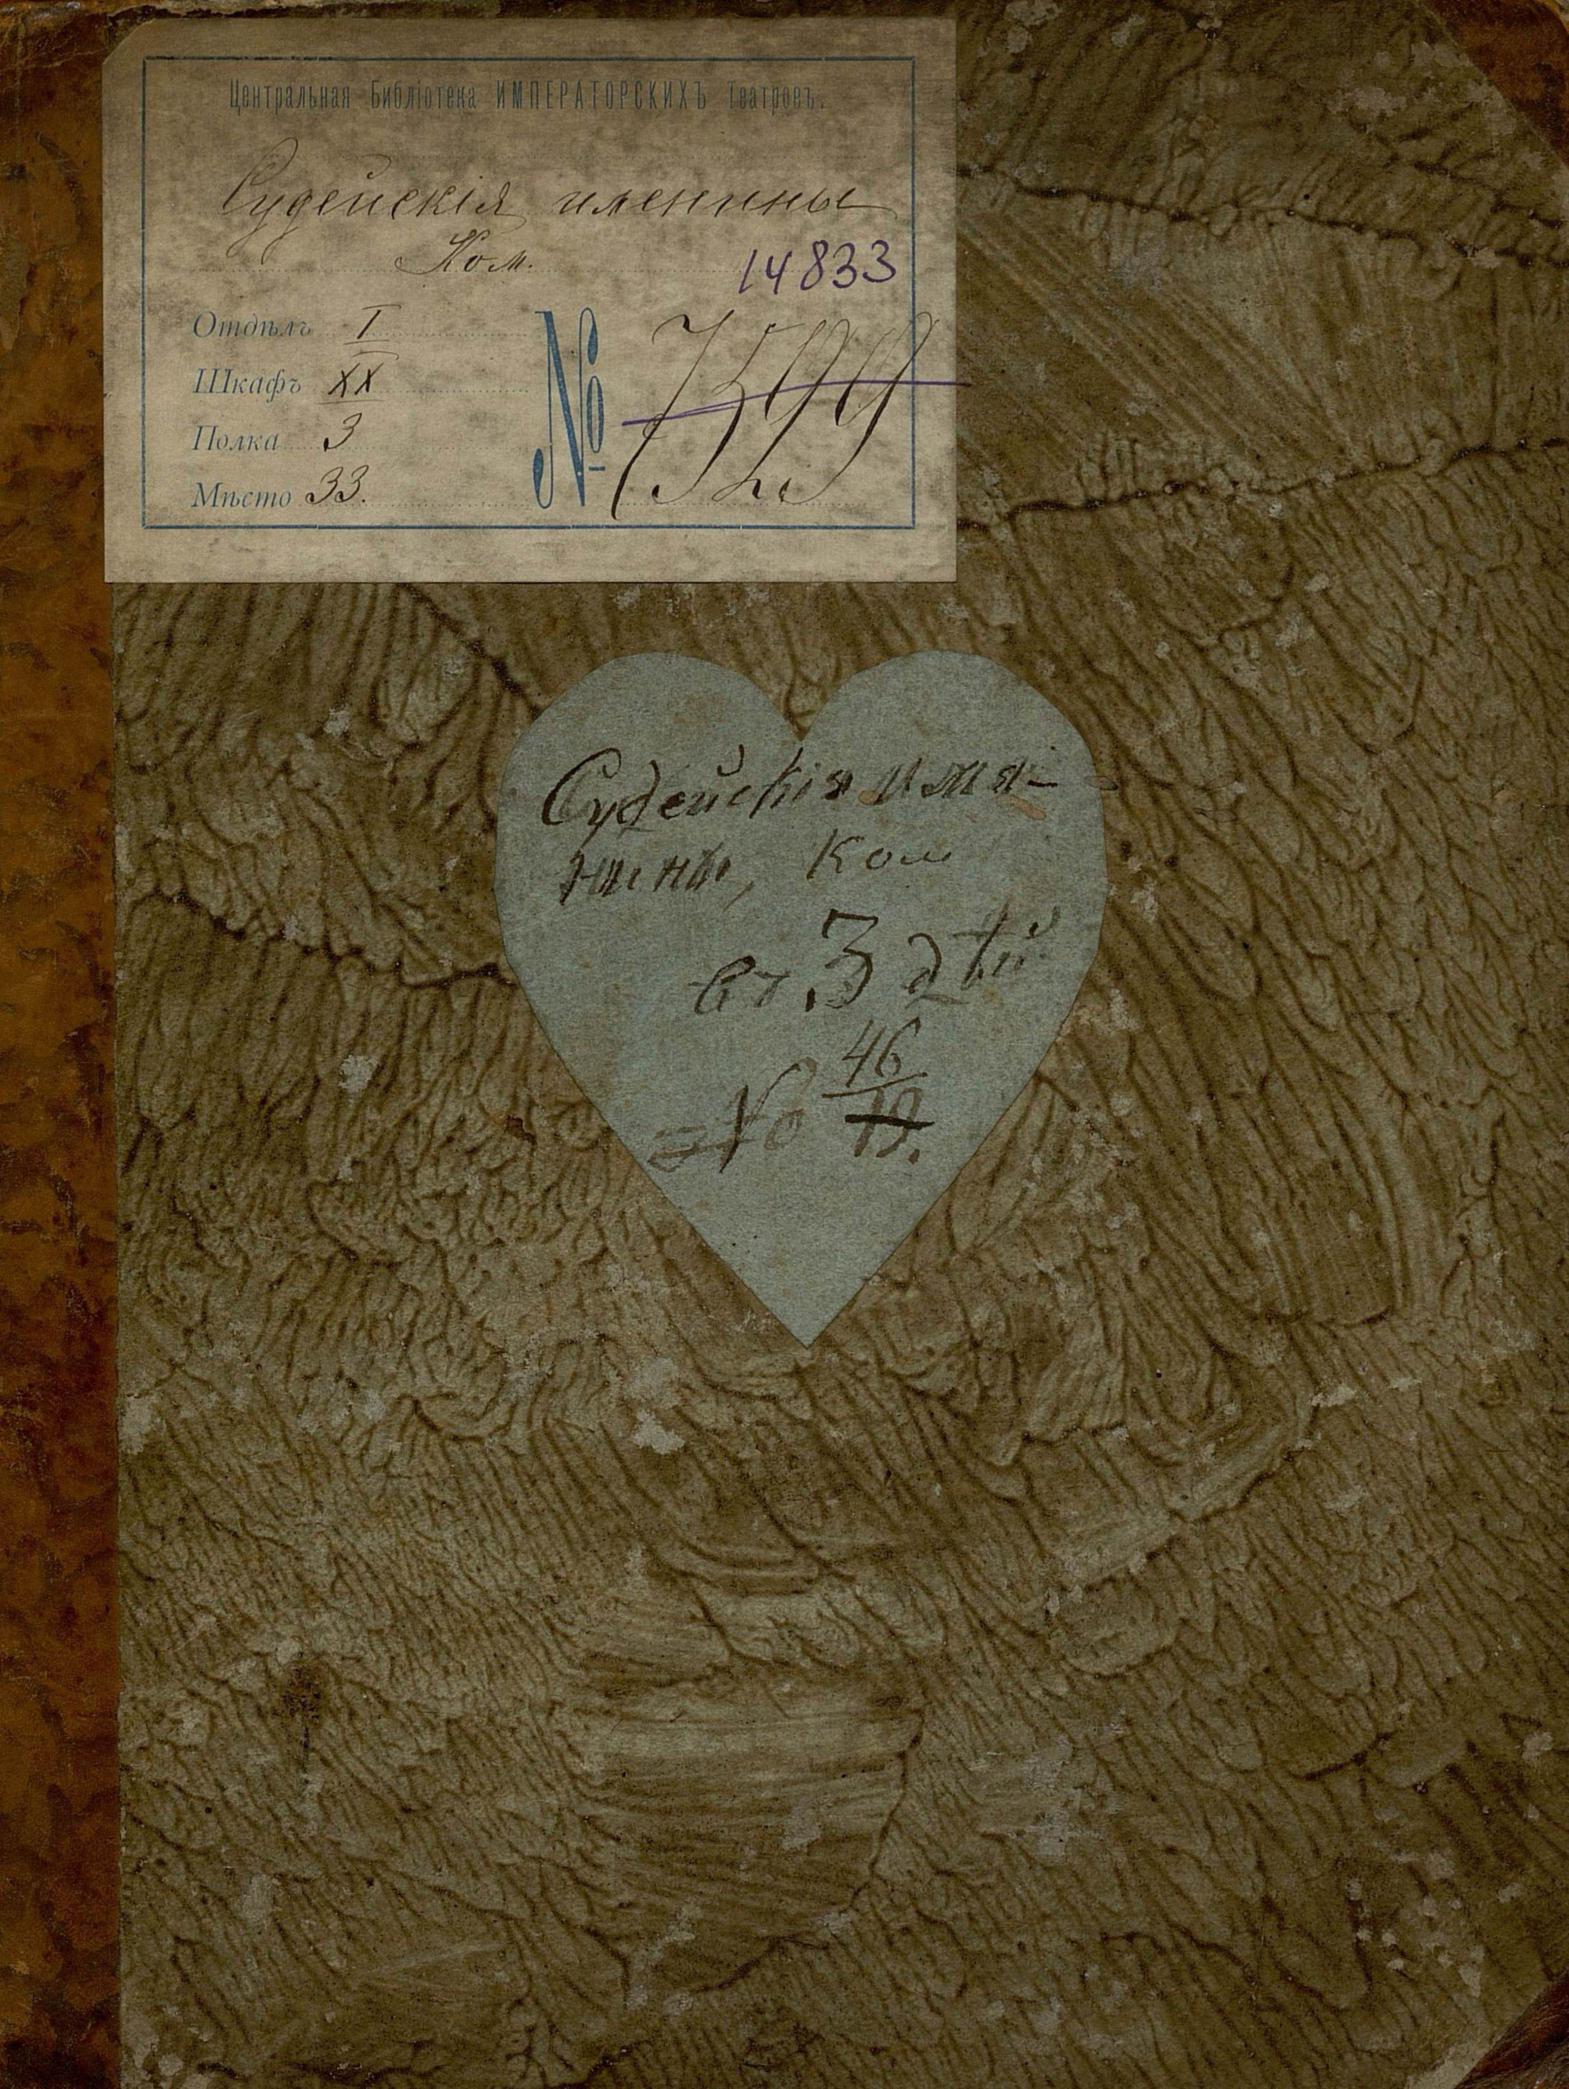 Центральная Библіотека ИМПЕРАТОРСКИХЪ Театровъ.
Судейскія именины
Ком.
14833
Отдѣлъ I
Шкафъ XX
Полка 3
Мѣсто 33.
№ 7599
Судейскія имя-
нины, Ком
въ 3 дѣй
№ 46
19.